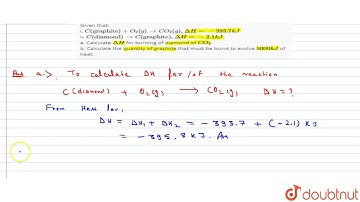 Given that:
i. C(graphite) + O₂(g) → CO₂(g), ΔH = −393.7kJ
ii. C(diamond) → C(graphite), ΔH = −2.1kJ
a. Calculate ΔH for burning of diamond of CO₂.
b. Calculate the quantity of graphite that must be burnt to evolve 5000kJ of heat.
Ans a.) To calculate ΔH for/of the reaction
C(diamond) + O₂(g) → CO₂(g) ΔH = ?
From Hess law,
ΔH = ΔH₁ + ΔH₂ = −393.7 + (−2.1) KJ
= −395.8 KJ. Ans
doubtnut